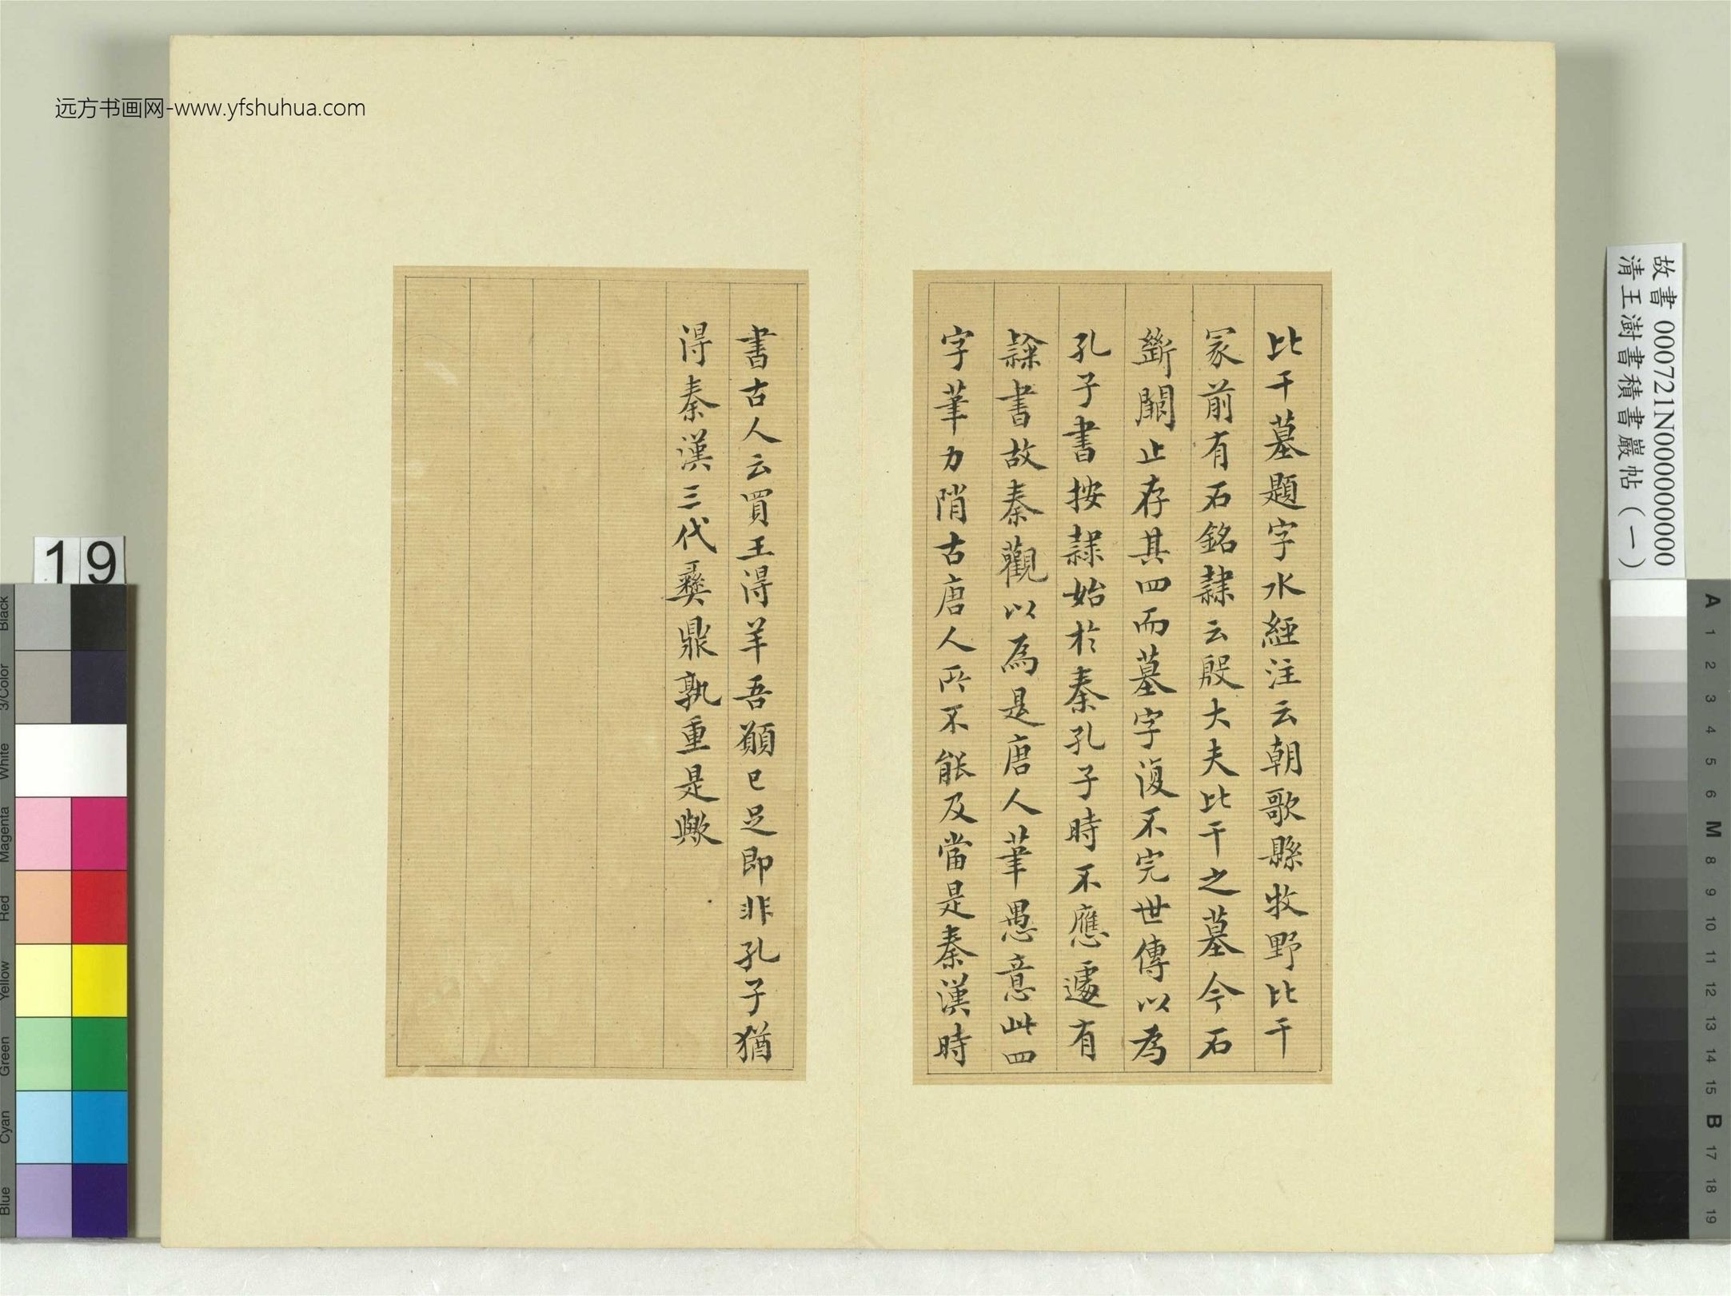 远方书画网-www.yfshuhua.com
比干墓題字水經注云朝歌縣牧野比干
冢前有石銘隸云殷大夫比干之墓今石
斷闕止存其四而墓字復不完世傳以為
孔子書按隸始於秦孔子時不應遽有
隸書故秦觀以為是唐人筆愚意此四
字筆力陗古唐人所不能及當是秦漢時
書古人云買王得羊吾願已足即非孔子猶
得秦漢三代彝鼎孰重是歟
故書 000721N000000000
清王澍書積書巖帖(一)
19
Black
3/Color
White
Magenta
Red
Yellow
Green
Cyan
Blue
A
1
2
3
4
5
6
M
8
9
10
11
12
13
14
15
B
17
18
19